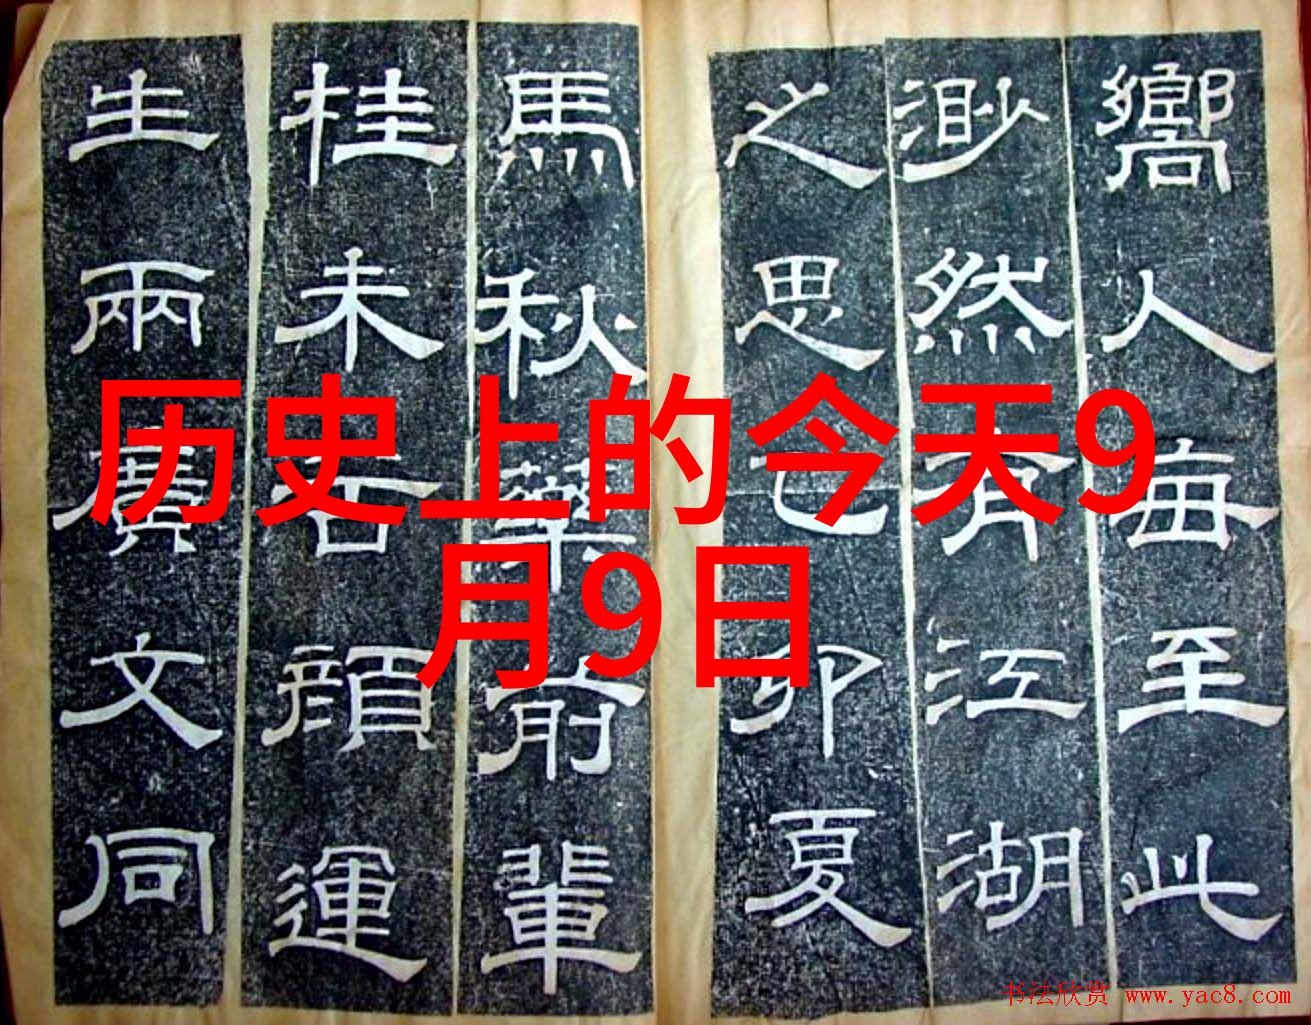 嚮人每至此
渺然有江湖
之思己卯夏
馬秋藥前輩
桂未谷顔運
生兩廣文同
历史上的今天9
月9日
书法欣赏 www.yac8.com